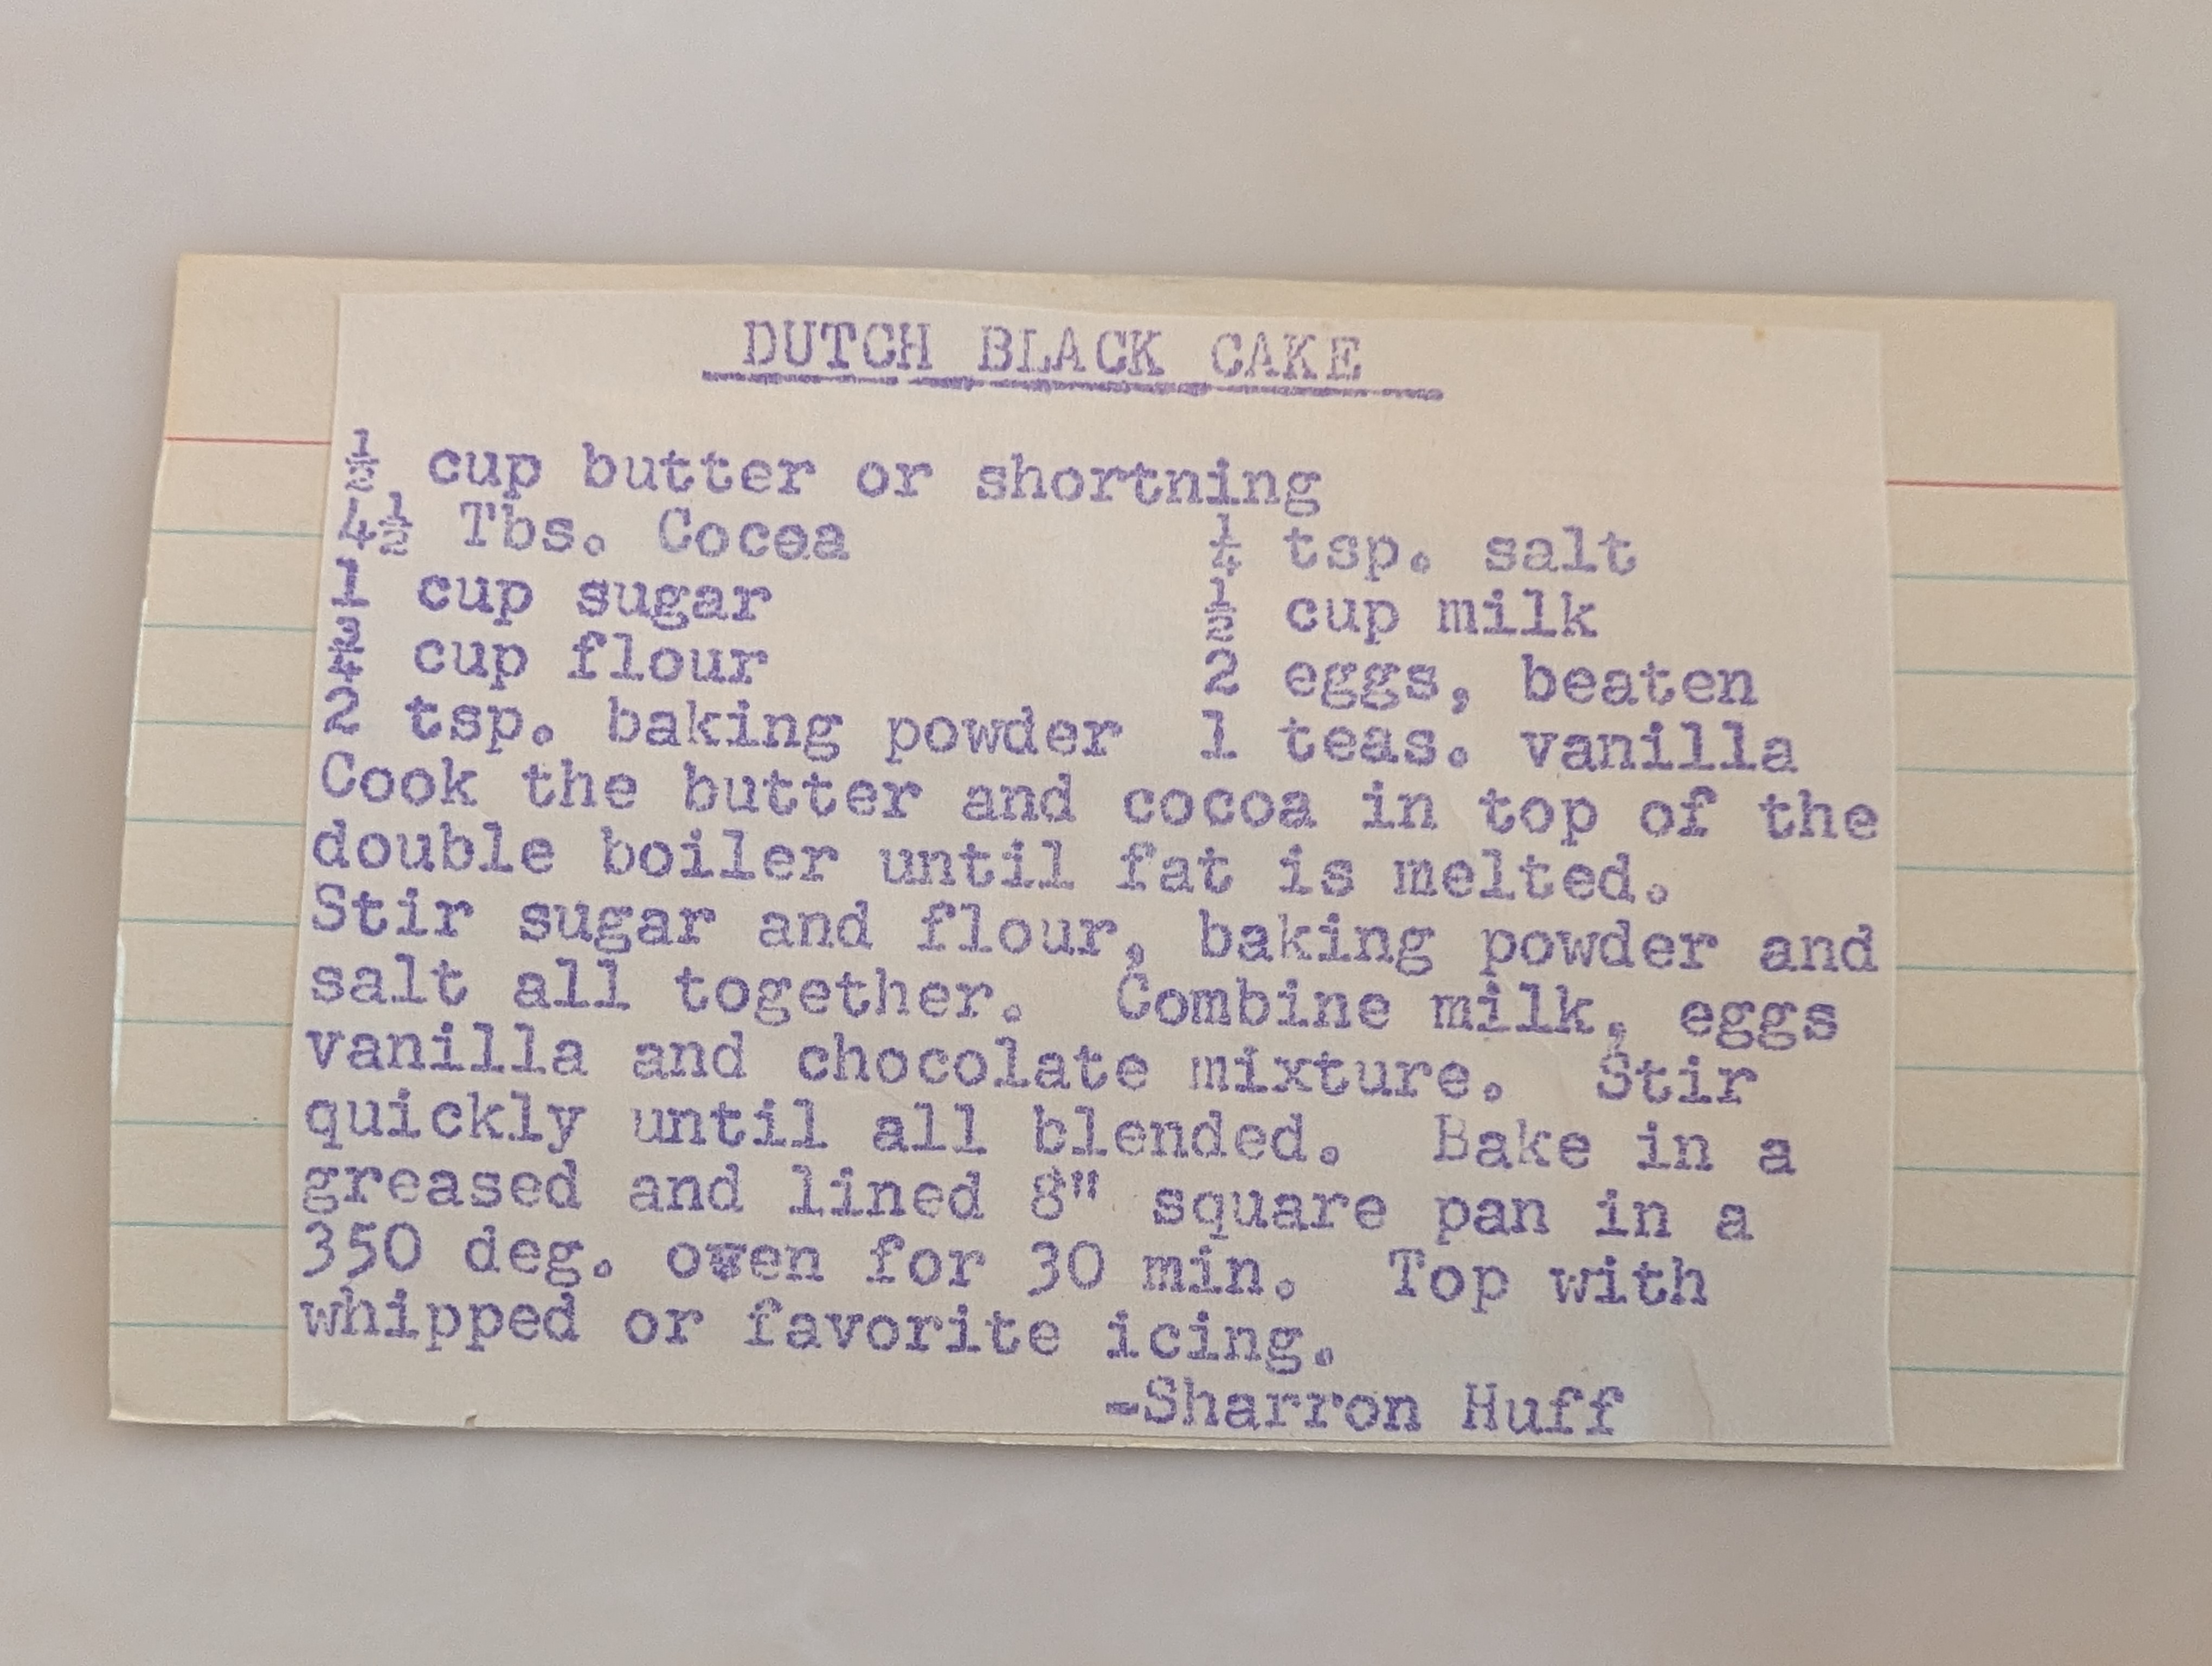 DUTCH BLACK CAKE
½ cup butter or shortning
4½ Tbs. Cocoa ¼ tsp. salt
1 cup sugar ½ cup milk
¾ cup flour 2 eggs, beaten
2 tsp. baking powder 1 teas. vanilla
Cook the butter and cocoa in top of the
double boiler until fat is melted.
Stir sugar and flour, baking powder and
salt all together. Combine milk, eggs
vanilla and chocolate mixture. Stir
quickly until all blended. Bake in a
greased and lined 8" square pan in a
350 deg. oven for 30 min. Top with
whipped or favorite icing.
-Sharron Huff